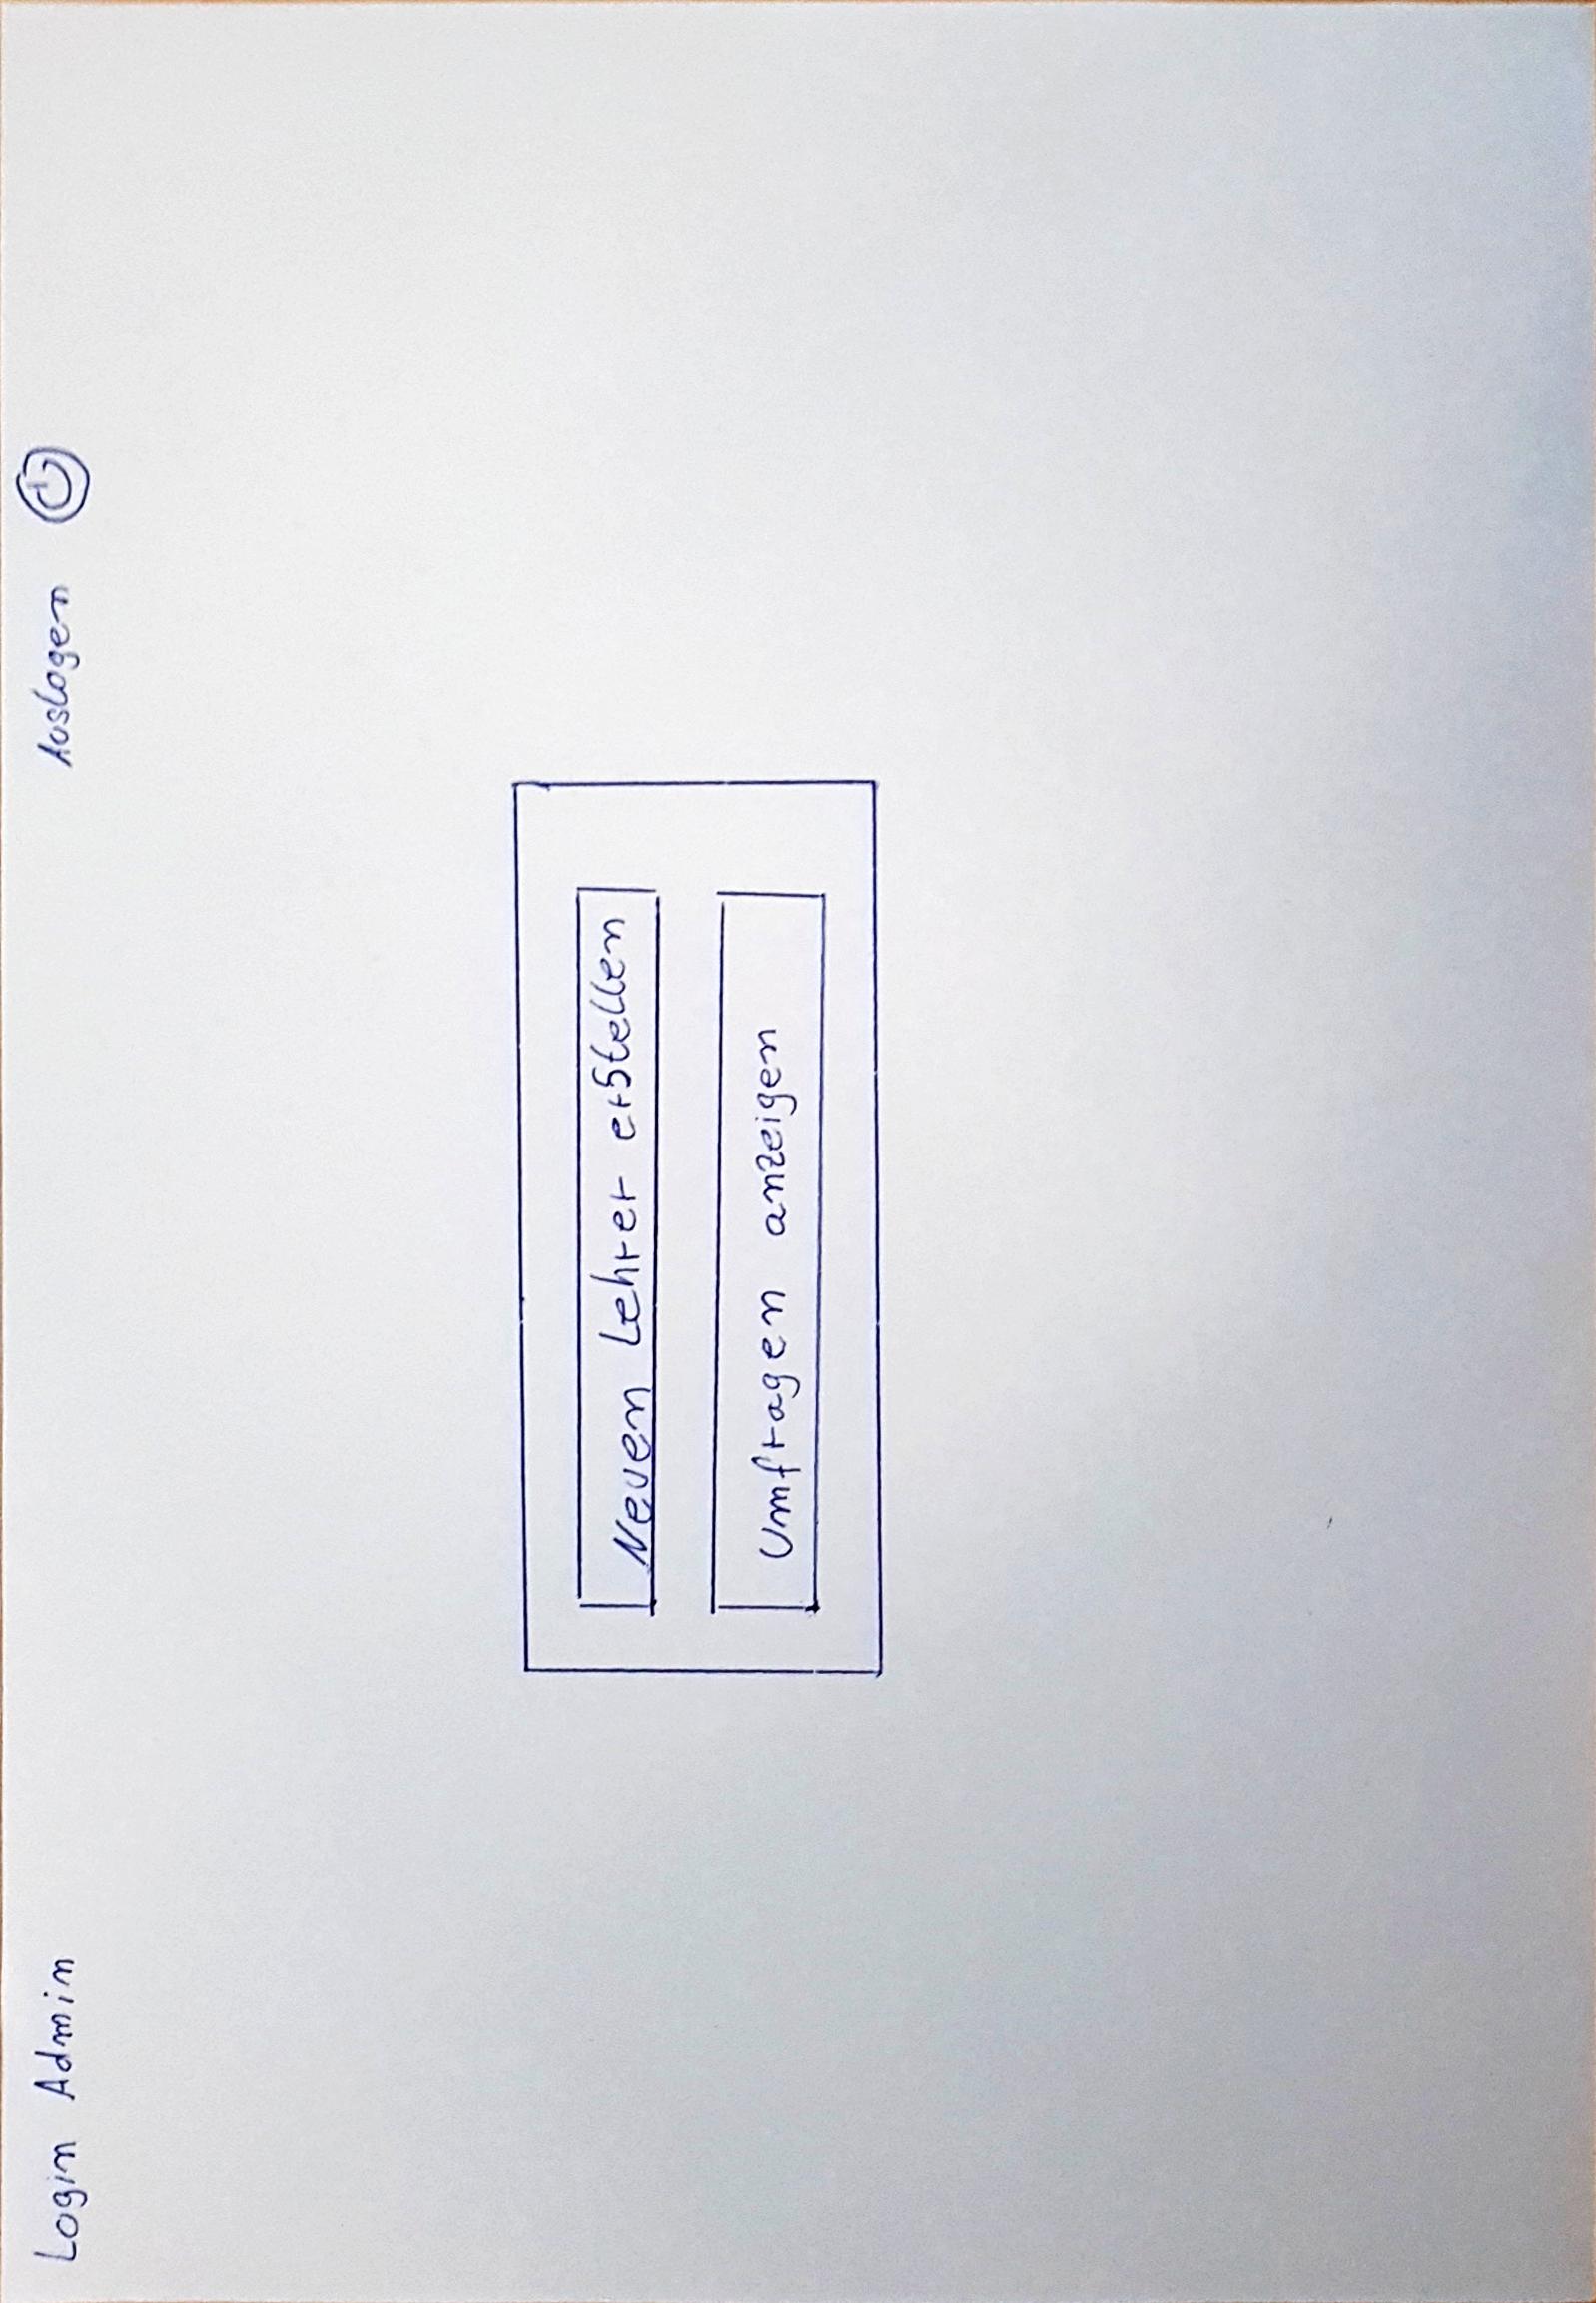 Login Admin
Auslogen
Neuen Lehrer erstellen
Umfragen anzeigen